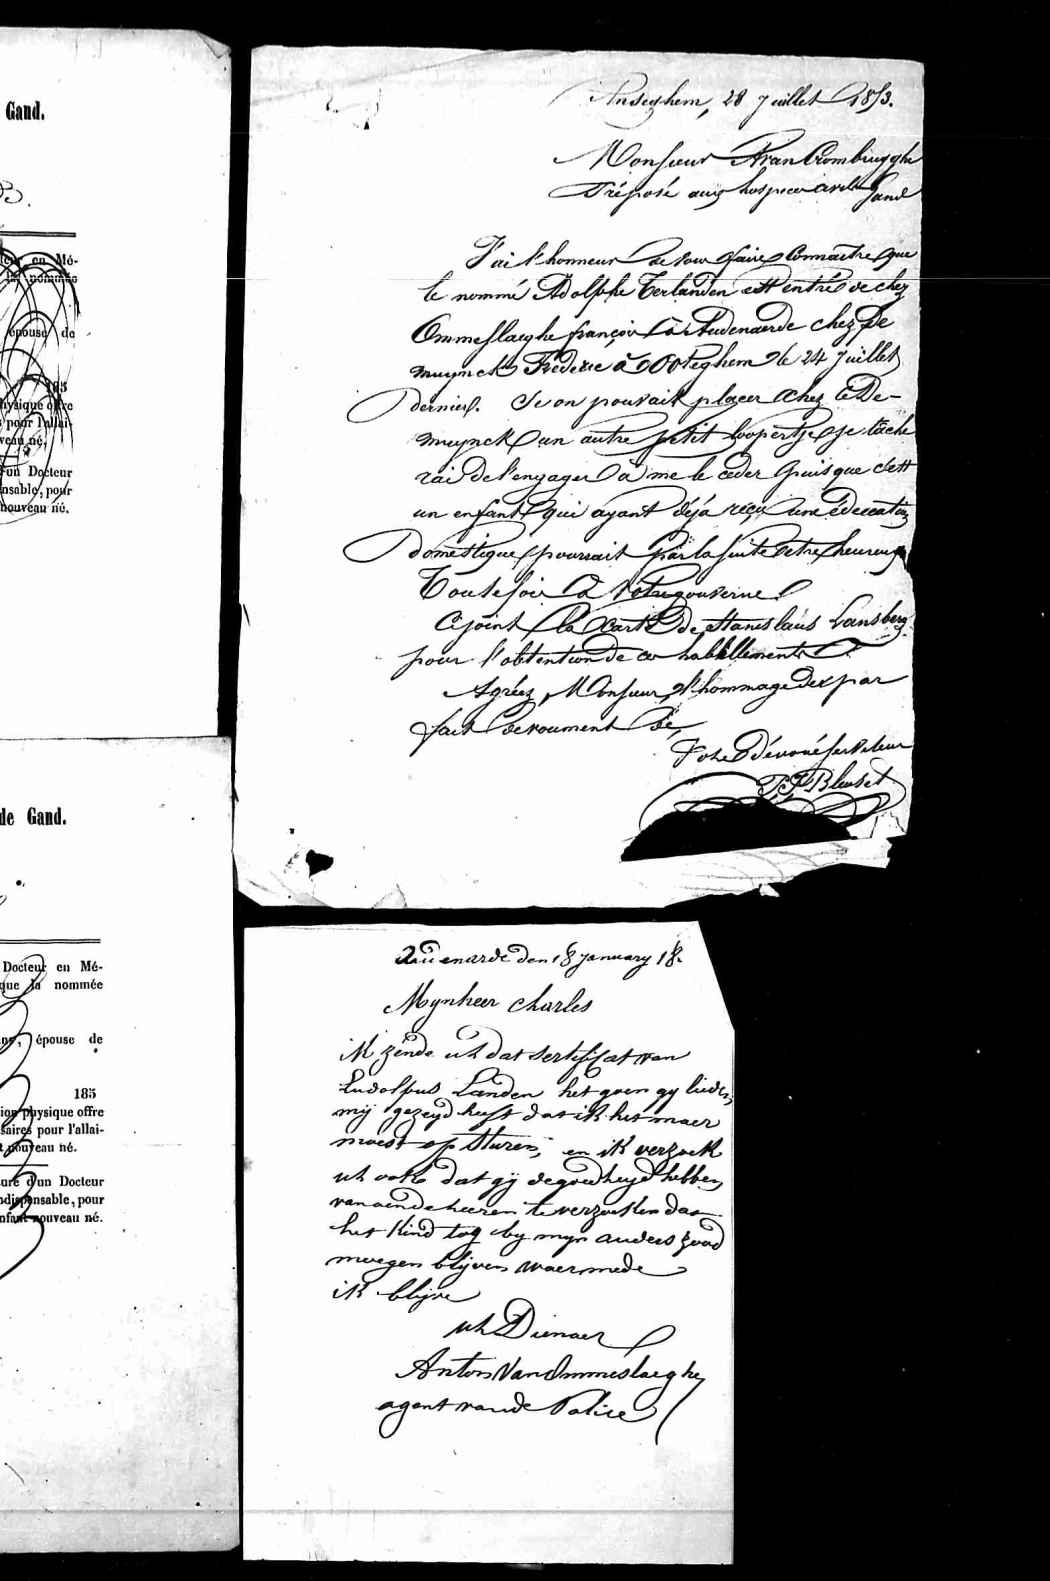 Gand.
en Mé-
la nommée
épouse de
185
physique offre
pour l'allai-
veau né.
d'un Docteur
nsable, pour
nouveau né.
de Gand.
Docteur en Mé-
que la nommée
épouse de
185
physique offre
saires pour l'allai-
nouveau né.
d'un Docteur
ndispensable, pour
nfant nouveau né.
Anseghem, 28 Juillet 1853.
Monsieur A Van Crombrugghe
Préposé aux hospices civils Gand
J'ai l'honneur de vous faire connaitre que
le nommé Adolphe Terlanden est entré de chez
Ommeslaeghe françois à Audenaerde chez De
muynck Frederic à Ooteghem le 24 Juillet
dernier. Si on pouvait placer chez le De-
muynck un autre petit loopertje je tache
rai de l'engager à me le céder puisque c'est
un enfant qui ayant déjà reçu une éducation
domestique pourrait par la suite être heureux
Toutefois à votre gouverne.
Cijoint la carte de Stanislaus Lansberg
pour l'obtention de ces habillements.
Agréez, Monsieur, l'hommage du par
fait devoument de,
Votre dévoué serviteur
Audenarde den 18 January 18
Mynheer Charles
ik zende uh dat sertificat van
Ludolfus Landen het goen gy lieden
mij gezeyd heeft dat ik het maer
moest op sturen, en ik verzoek
uh ook dat gij de goedheyd hebben
van aen de heeren te verzoeken dat
het kind tog by myn auders zoud
moegen blijven waermede
ik blijve
uh Dienaer
Anton Van Ommeslaeghe
agent van de Police